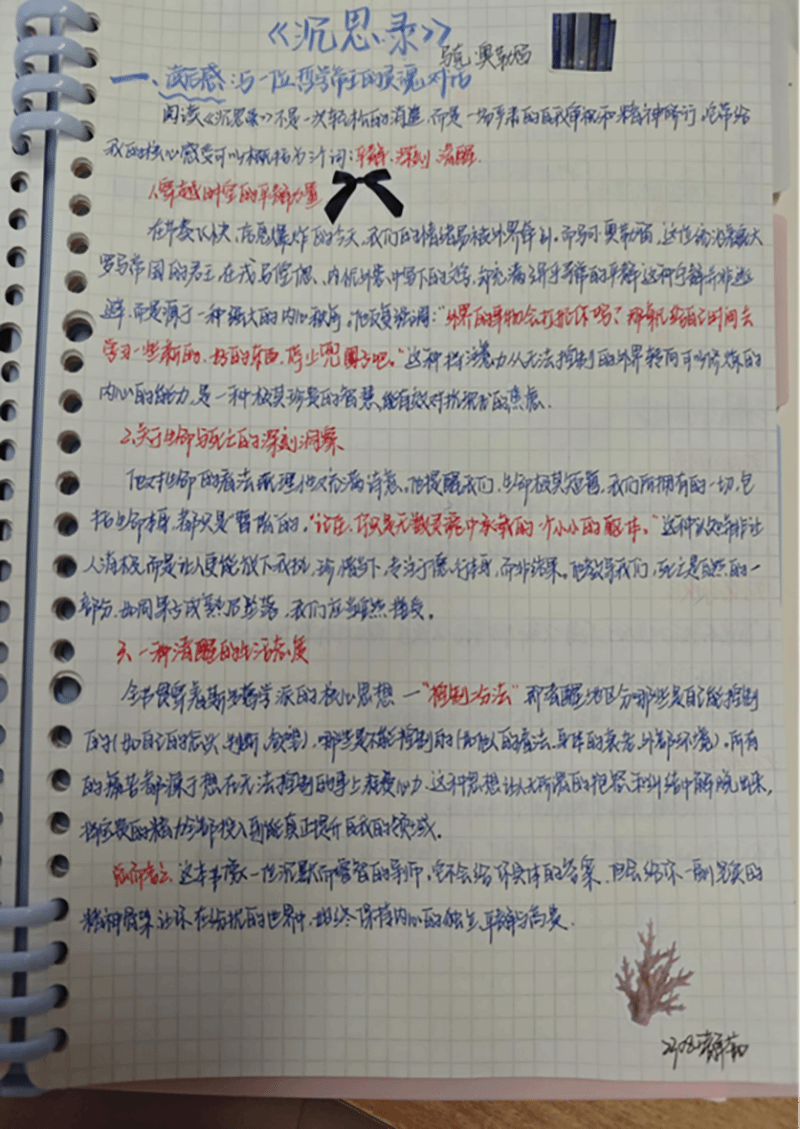 《沉思录》
马克·奥勒留
一、读后感:与一位哲学帝王的灵魂对话
阅读《沉思录》不是一次轻松的消遣,而是一场严肃的自我审视和精神修行,它带给
我的核心感受可以概括为三个词:平静、深刻、清醒.
1.穿越时空的平静力量
在节奏飞快、信息爆炸的今天,我们的情绪易被外界牵引。而马可·奥勒留,这位统治着庞大
罗马帝国的君王,在戎马倥偬、内忧外患中写下的文字,却充满了异乎寻常的平静,这种宁静并非逃
避,而是源于一种强大的内心秩序。他反复强调:“外界的事物会打扰你吗?那就给自己时间去
学习一些新的、好的东西,停止兜圈子吧。”这种将注意力从无法控制的外界转向可以修炼的
内心的能力,是一种极其珍贵的智慧,能有效对抗现代的焦虑.
2.关于生命与死亡的深刻洞察
他对生命的看法既理性又充满诗意。他提醒我们,生命极其短暂,我们所拥有的一切,包
括生命本身,都只是“暂借”的。“记住,你只是无数灵魂中承载的一个小小的躯体。”这种认知并非让
人消极,而是让人更能放下我执,珍惜当下,专注于德行本身,而非结果。他教导我们,死亡是自然的一
部分,如同果子成熟后坠落,我们应当坦然接受。
3.一种清醒的生活态度
全书贯穿着斯多葛学派的核心思想 一“控制二分法” 即清醒地区分哪些是自己能控制
的(如自己的意义、判断、欲望),哪些是不能控制的(如他人的看法、身体的衰老、外部环境)。所有
的痛苦都源于想在无法控制的事上耗费心力.这种思想让人从无所谓的抱怨和纠结中解脱出来,
将宝贵的精力全部投入到能真正提升自我的领域.
总而言之,这本书像一位沉默而睿智的导师,它不会给你具体的答案,但会给你一副坚实的
精神骨架,让你在纷扰的世界中,始终保持内心的独立、平静与高贵.